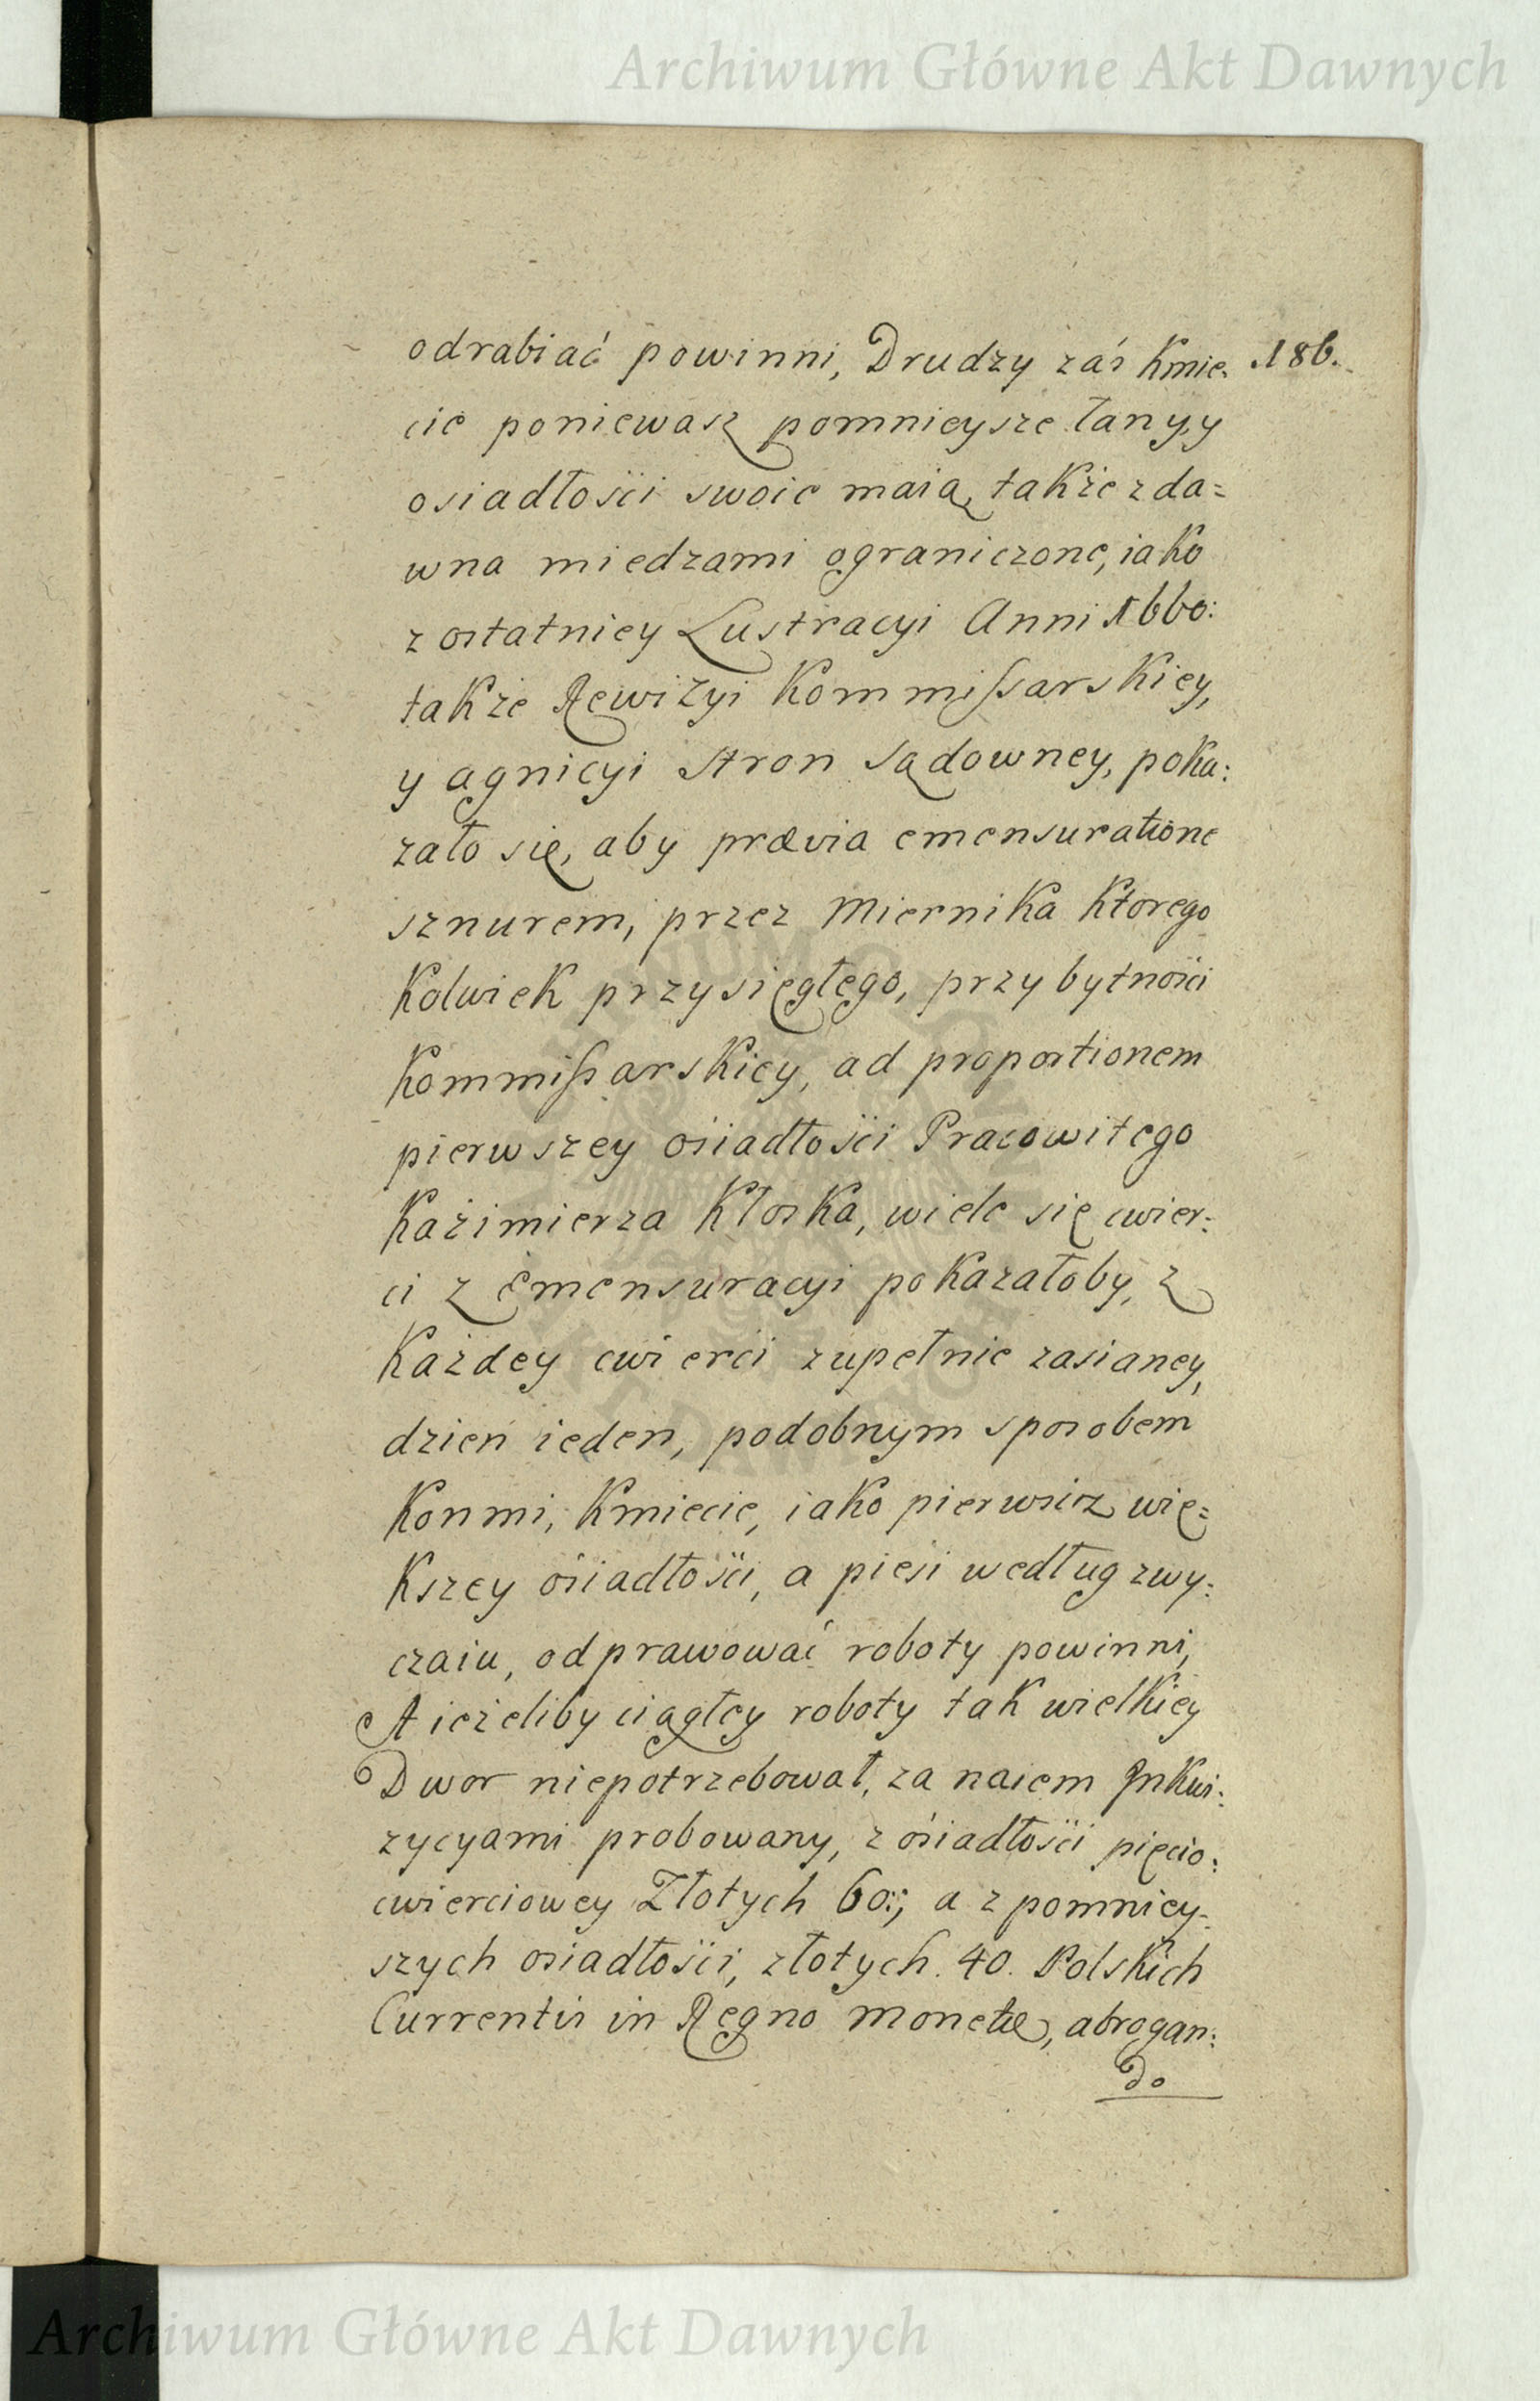 Archiwum Główne Akt Dawnych
odrabiać powinni, Drudzy záś Kmie: .186.
cie poniewasz pomnieysze łany, y
osiadłości swoie maią, także zda=
wna miedzami ograniczone, iako
z ostatniey Lustracyi Anni 1660:
także Rewizyi Kommissarskiey,
y agnicyi stron sądowney, poka:
zało się, aby prævia emensuratione
sznurem, przez Miernika Ktorego
Kolwiek przysięgłego, przy bytności
Kommissarskiey, ad proportionem
pierwszey osiadłości Pracowitego
Kaźimierza Kłoska, wiele się cwier:
ci z Emensuracyi pokazałoby, z
Każdey cwierci zupełnie zasianey,
dzień ieden, podobnym sposobem
Konmi, Kmiecie, iako pierwsiz wię=
Kszey ośiadłości, a piesi według zwy:
czaiu, odprawować roboty powinni,
A ieżeliby ciągłey roboty tak wielkiey
Dwor niepotrzebował, za naiem Inkwi:
zycyami probowany, z ośiadłości pięcio:
cwierciowey Złotych 60:, a z pomniey:
szych osiadłości, złotych. 40. Polskich
Currentis in Regno monetæ, abrogan:
do
Archiwum Główne Akt Dawnych